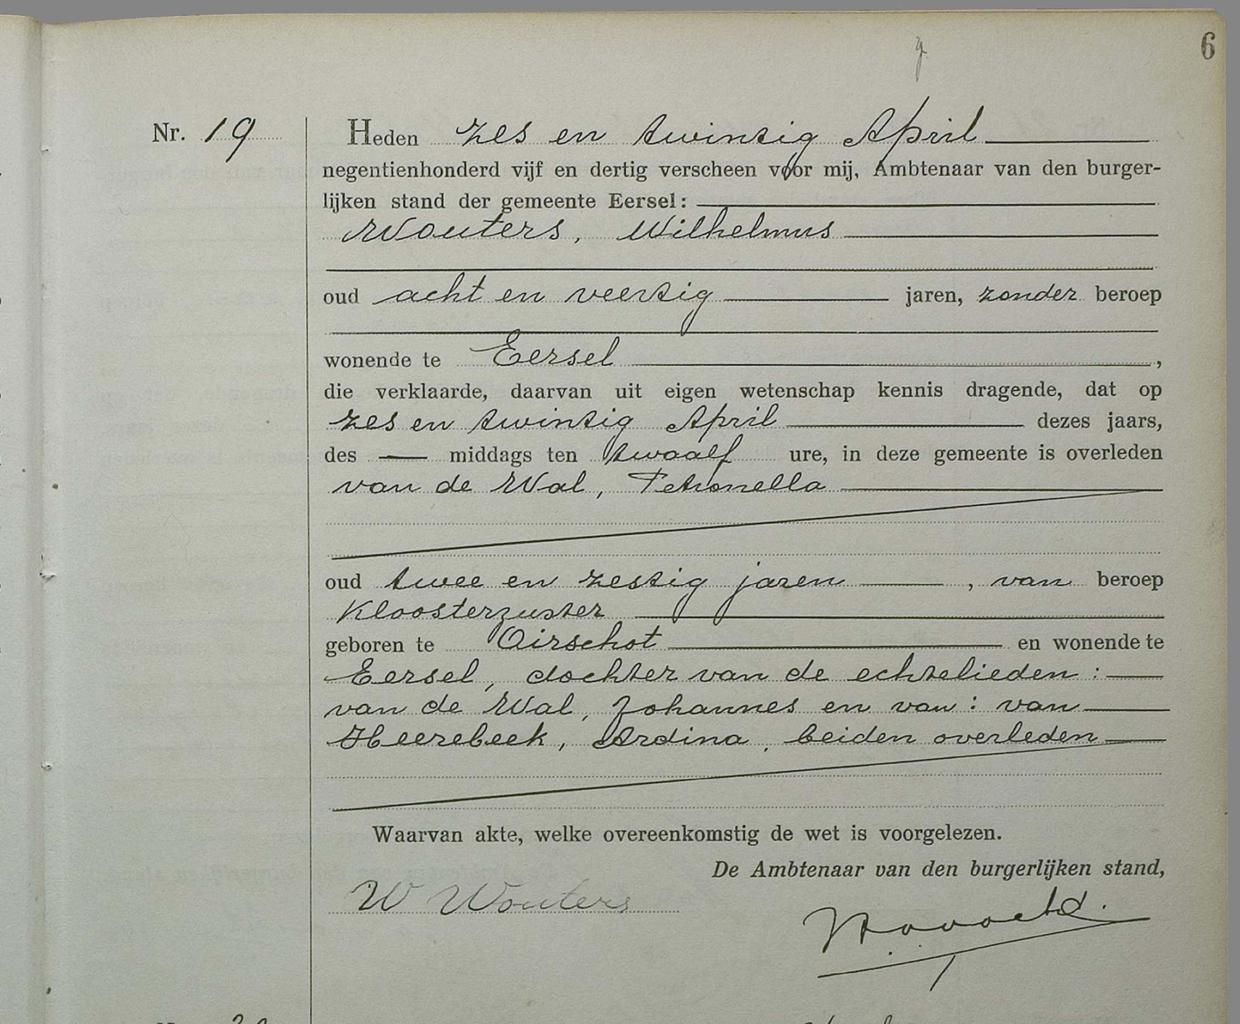 6
Nr. 19
Heden zes en twintig April
negentienhonderd vijf en dertig verscheen voor mij, Ambtenaar van den burger-
lijken stand der gemeente Eersel:
Wouters, Wilhelmus
oud acht en veertig jaren, zonder beroep
wonende te Eersel,
die verklaarde, daarvan uit eigen wetenschap kennis dragende, dat op
zes en twintig April dezes jaars,
des — middags ten twaalf ure, in deze gemeente is overleden
van de Wal, Petronella
oud twee en zestig jaren, van beroep
Kloosterzuster
geboren te Oirschot en wonende te
Eersel, dochter van de echtelieden:
van de Wal, Johannes en van: van
Heerebeek, Ardina, beiden overleden
Waarvan akte, welke overeenkomstig de wet is voorgelezen.
De Ambtenaar van den burgerlijken stand,
W Wouters